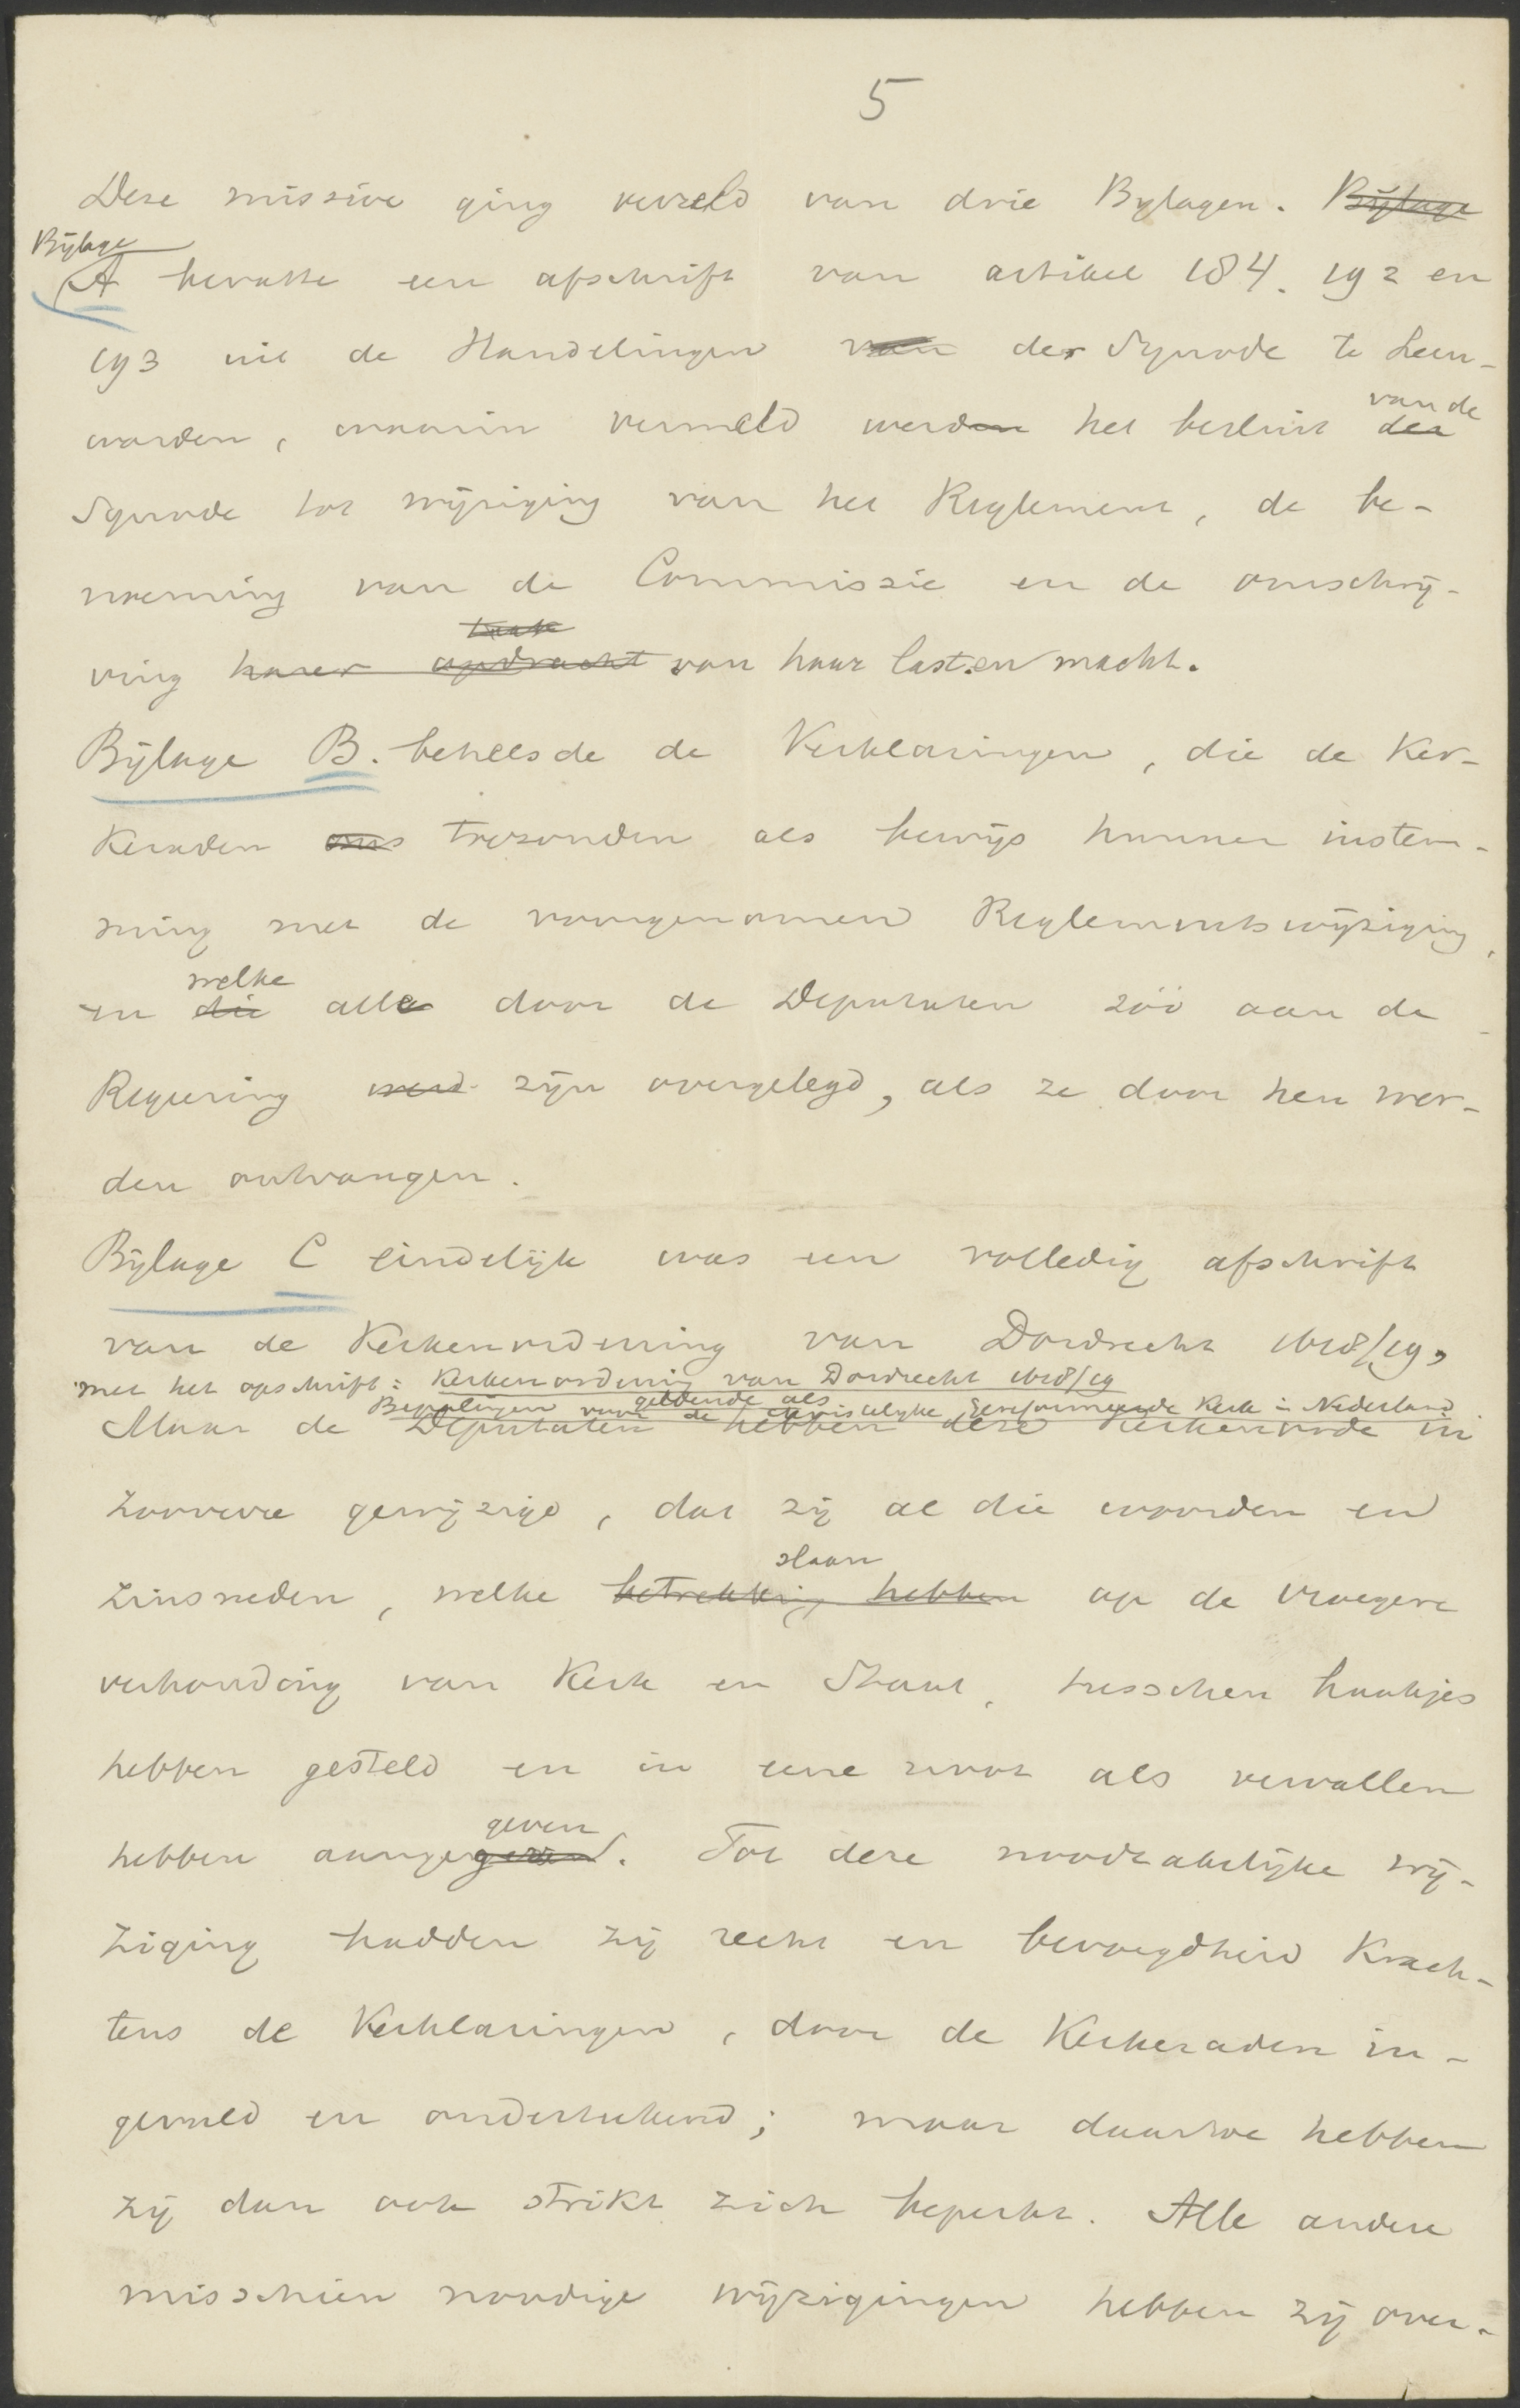 5
Deze missive ging verzeld van drie Bylagen. Bijlage
Bijlage
A bevatte een afschrift van artikel 184. 192 en
193 uit de Handelingen van der Synode te Leeu-
warden, waarin vermeld werden het besluit der
van de
Synode tot wijziging van het Reglement, de be-
noeming van de Commissie en de omschrij-
ving harer opdracht van haar last en macht.
Bijlage B. behelsde de Verklaringen, die de Ker-
keraden ons toezonden als bewijs hunner instem-
ming met de voorgenomen Reglementswijziging,
welke
en die alle door de Deputaten zóó aan de
Regeering werd zijn overgelegd, als ze door hen wer-
den ontvangen.
Bijlage C eindelijk was een volledig afschrift
van de Kerkenordening van Dordrecht 1618/19,
met het opschrift: Kerkenordening van Dordrecht 1618/19
geldende als
Bepalingen voor de Christelijke Gereformeerde Kerk in Nederland
Maar de Deputaten hebben deze Kerkenorde in
zooverre gewijzigd, dat zij al die woorden en
slaan
zinsneden, welke betrekking hebben op de vroegere
verhouding van Kerk en Staat, tusschen haakjes
hebben gesteld en in eene noot als vervallen
geven
hebben aange. Tot deze noodzakelijke wij-
ziging hadden zij recht en bevoegdheid Krach-
tens de Verklaringen, door de Kerkeraden in-
gevuld en onderteekend; maar daartoe hebben
zij dan ook strikt zich beperkt. Alle andere
misschien noodige wijzigingen hebben zij over-